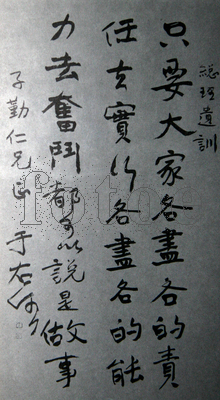 總理遺訓
只要大家各盡各的責
任去實行各盡各的能
力去奮鬥都可以說是做事
子勤仁兄正 于右任
foto